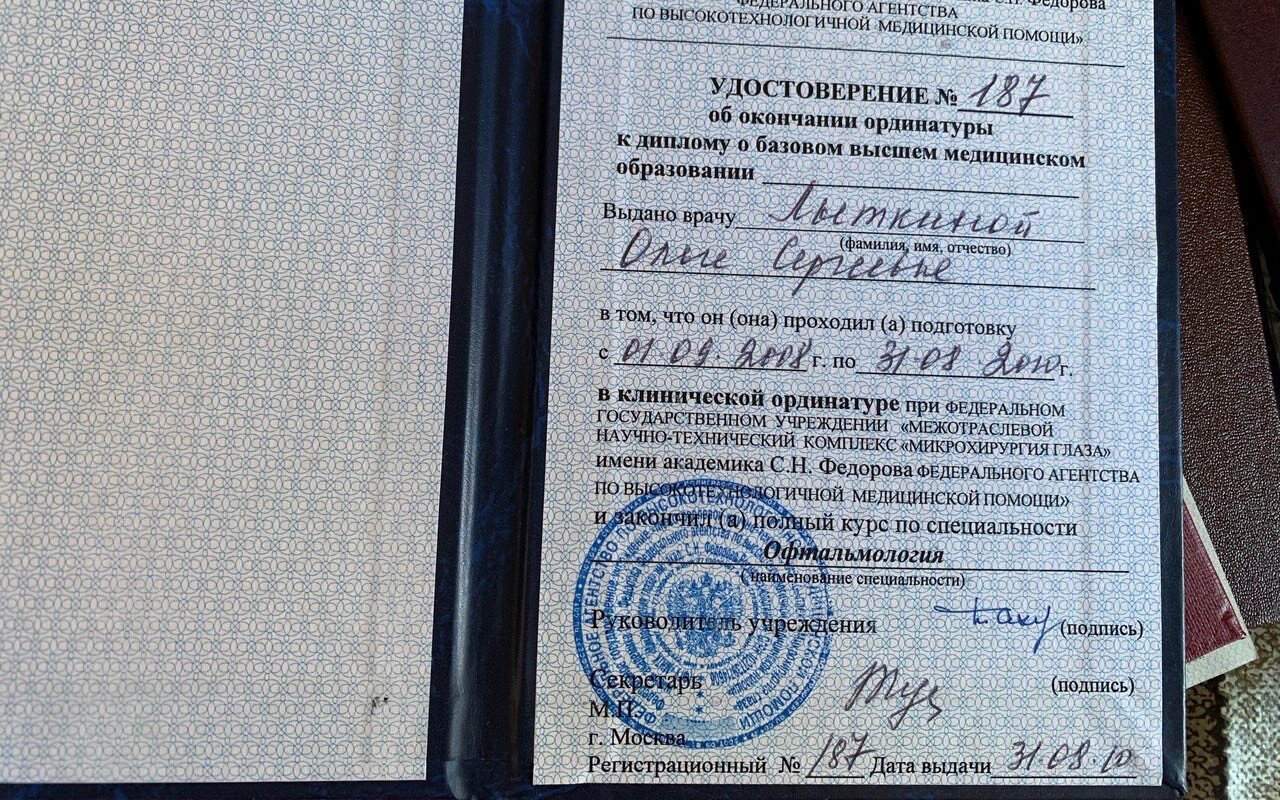 С.Н. Федорова
ФЕДЕРАЛЬНОГО АГЕНТСТВА
ПО ВЫСОКОТЕХНОЛОГИЧНОЙ МЕДИЦИНСКОЙ ПОМОЩИ»
УДОСТОВЕРЕНИЕ № 187
об окончании ординатуры
к диплому о базовом высшем медицинском
образовании
Выдано врачу Лыткиной
(фамилия, имя, отчество)
Ольге Сергеевне
в том, что он (она) проходил (а) подготовку
с 01.09.2008 г. по 31.08 2010 г.
в клинической ординатуре при ФЕДЕРАЛЬНОМ
ГОСУДАРСТВЕННОМ УЧРЕЖДЕНИИ «МЕЖОТРАСЛЕВОЙ
НАУЧНО-ТЕХНИЧЕСКИЙ КОМПЛЕКС «МИКРОХИРУРГИЯ ГЛАЗА»
имени академика С.Н. Федорова ФЕДЕРАЛЬНОГО АГЕНТСТВА
ПО ВЫСОКОТЕХНОЛОГИЧНОЙ МЕДИЦИНСКОЙ ПОМОЩИ»
и закончил (а) полный курс по специальности
Офтальмология
(наименование специальности)
Руководитель учреждения (подпись)
Секретарь (подпись)
М.П.
г. Москва
Регистрационный № 187 Дата выдачи 31.08.10